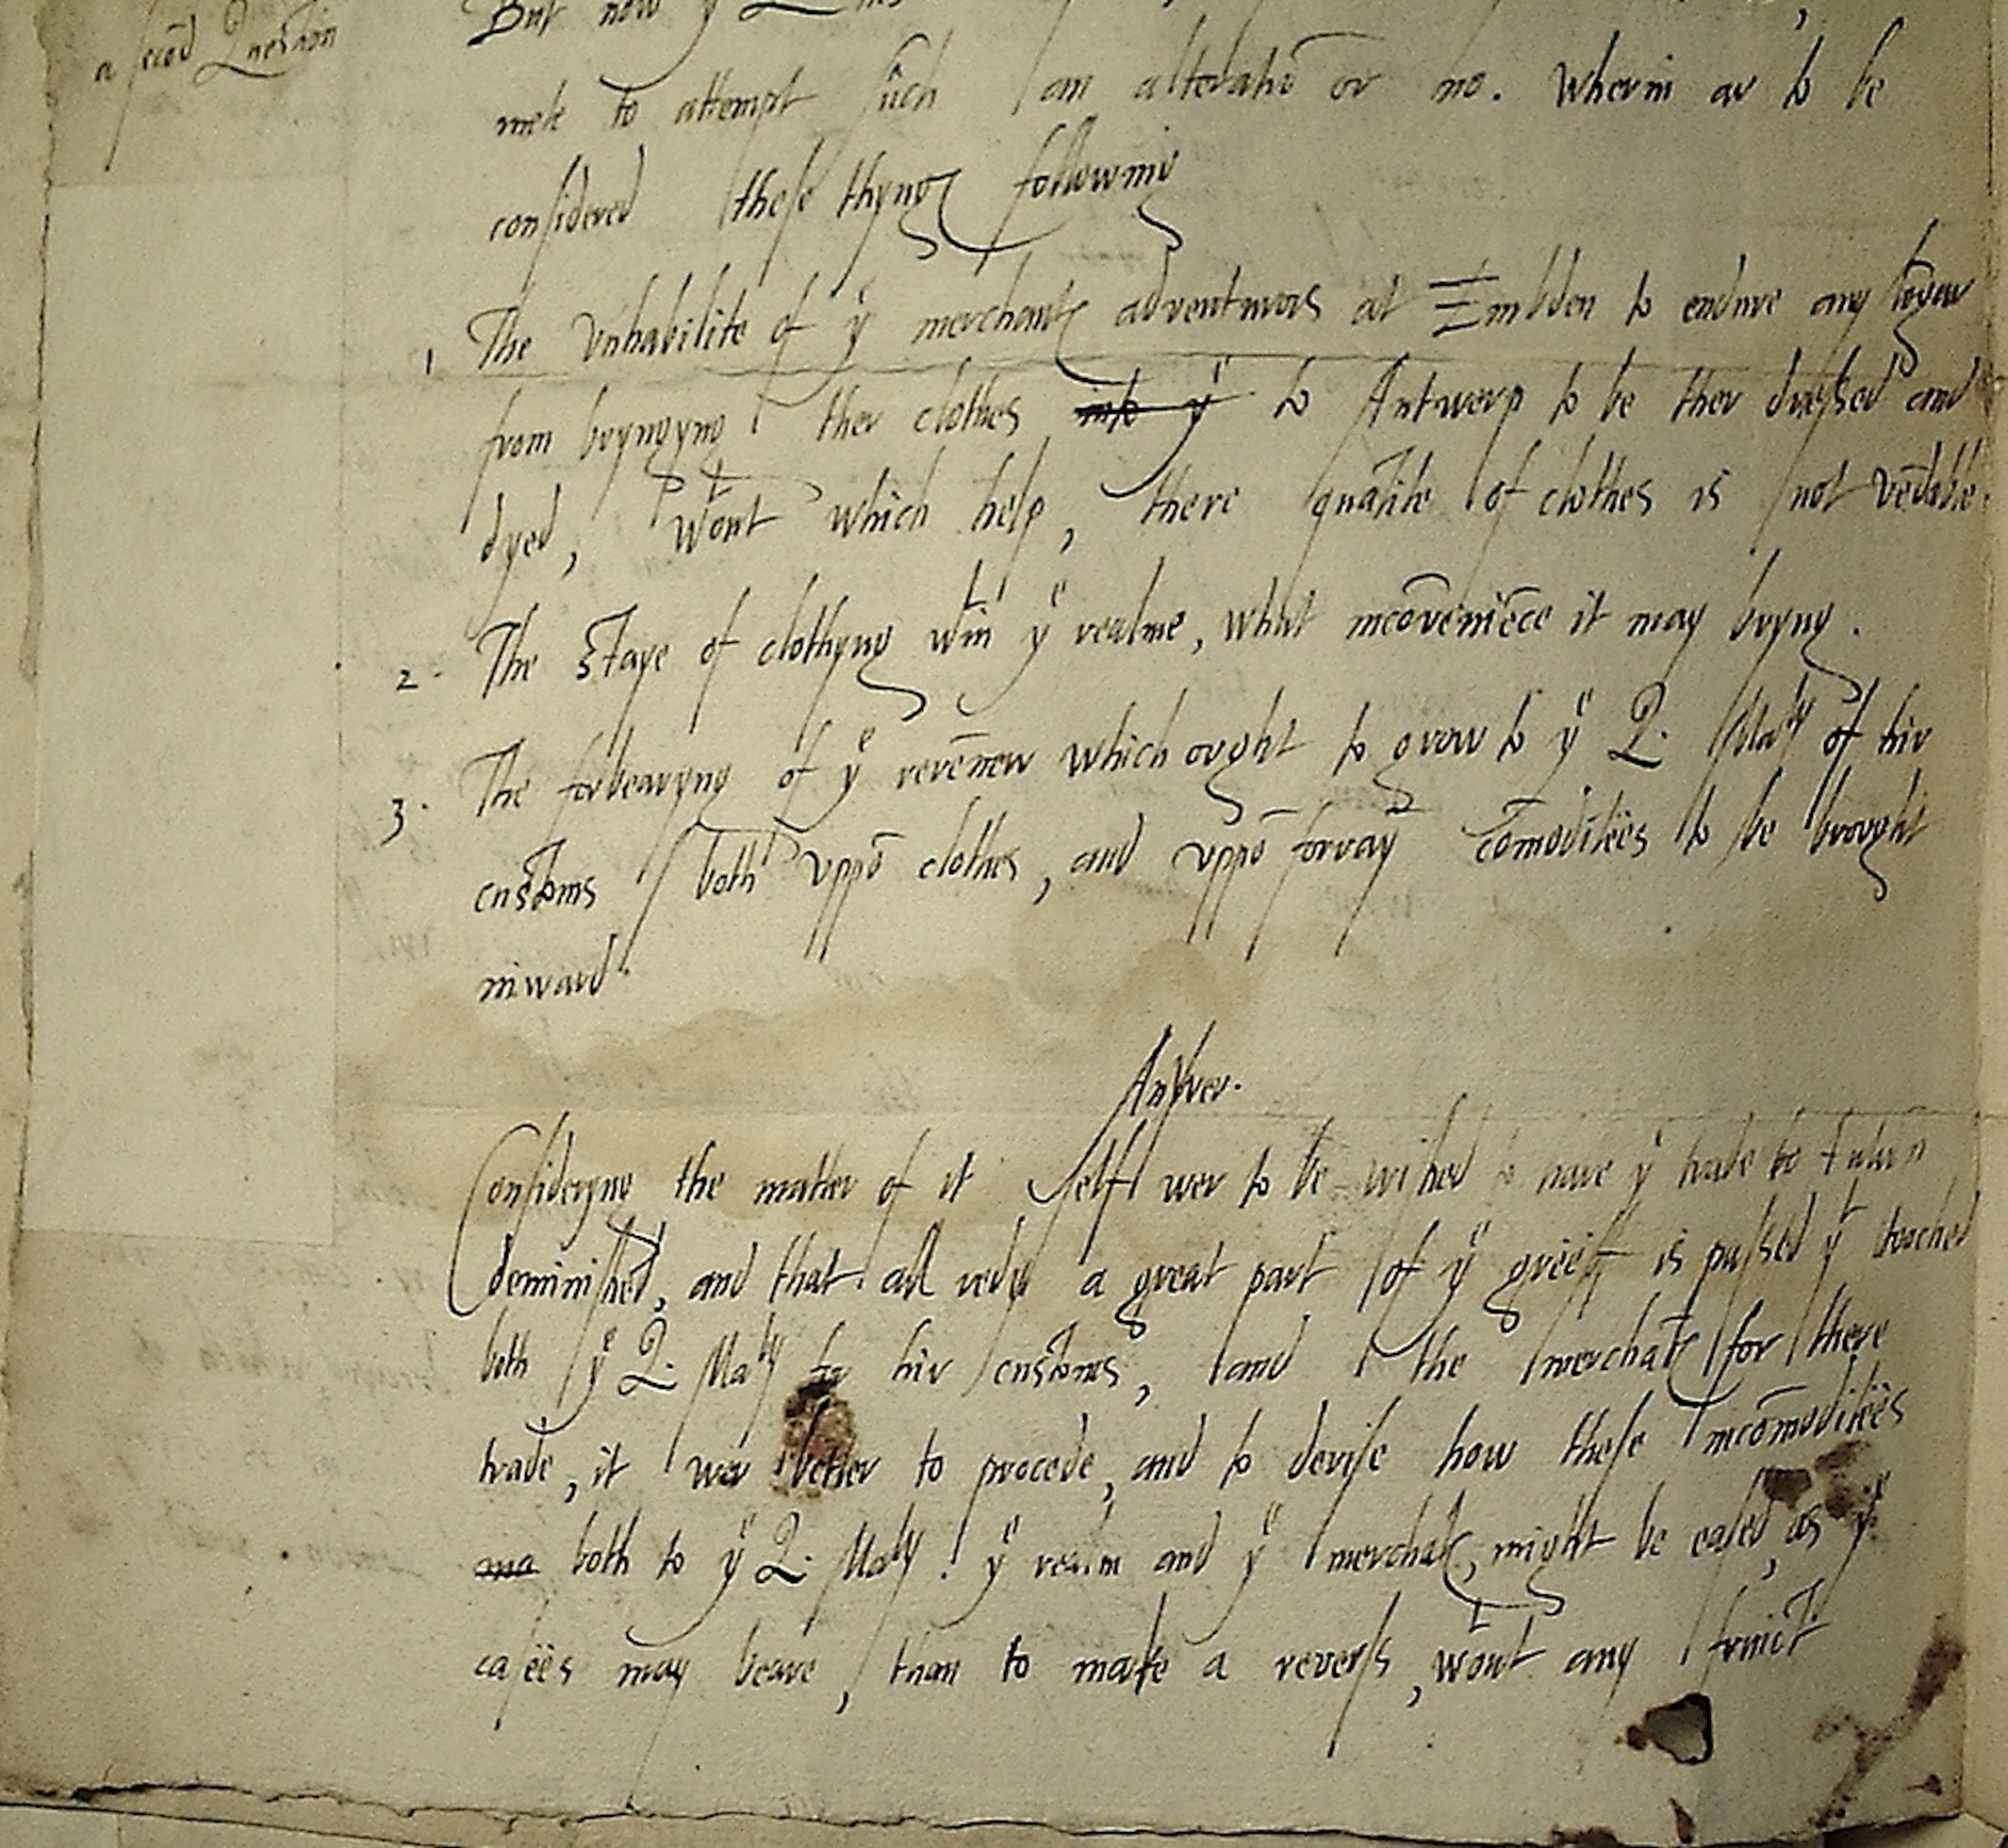 a secōd Question
But now yᵉ
mete to attempt such an alteratiō or no. Wherin ar to be
considered these thyngs followyng
1 The vnhabilite of yᵉ merchants adventurors at Embden to endure any lōgar
from bryngyng ther clothes ~~into yᵉ~~ to Antwerp to be ther dressed and
dyed, wᵗout which help, there qualite of clothes is not vēdable.
2. The staye of clothyng wᵗin yᵉ realme, what incōveniēce it may bryng.
3. The forbearyng of yᵉ revēnew which ought to grow to yᵉ Q. Maᵗʸ of hir
customs both vppō clothes, and vppō forrayn cōmoditees to be brought
inward.
Answer.
Consideryng the matter of it self wer to be wished to have yᵉ trade be
deminished, and that all redy a great part of yᵉ grieff is passed yᵗ towched
both yᵉ Q. Maᵗʸ for hir customes, and the merchāts for there
trade, it wer better to procede, and to devise how these incōmoditees
~~ma~~ both to yᵉ Q. Maᵗʸ yᵉ realm and yᵉ merchāts, might be eased, as yᵉ
casees may beare, than to make a reverss, wᵗout any fruict